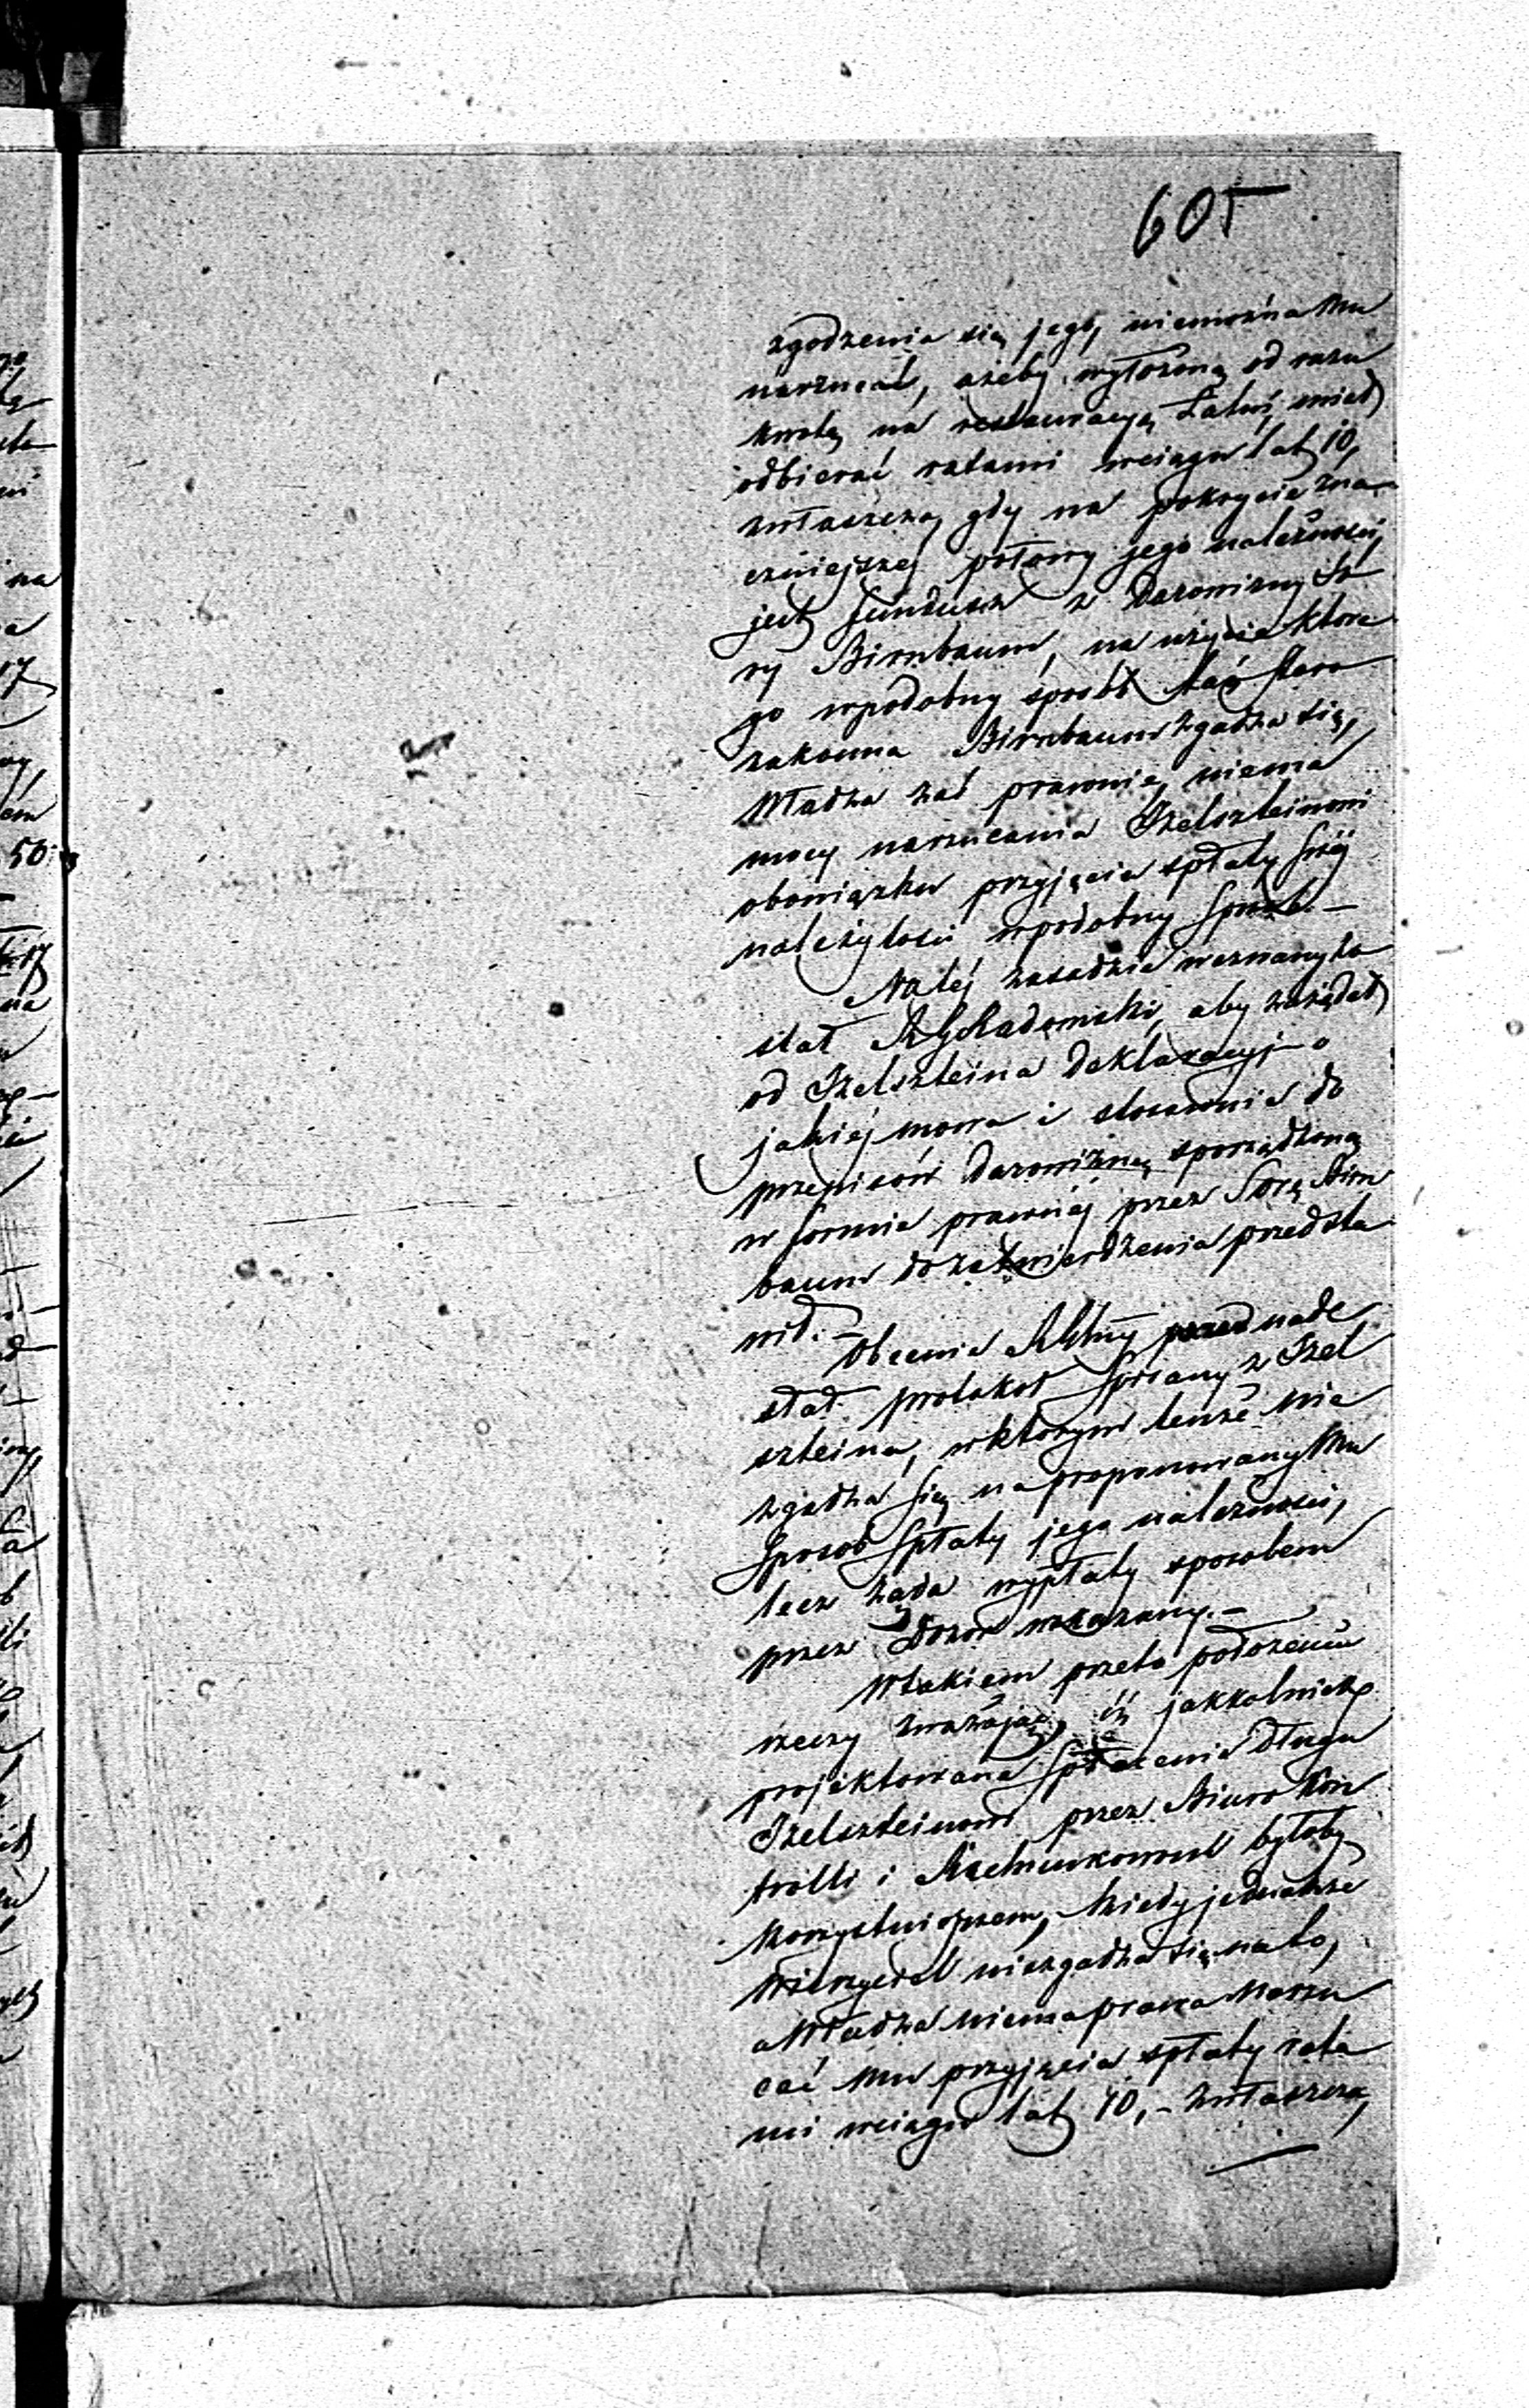 605
zgodzenia się jego, niemożna Mu
narzucać, ażeby wyłożoną od razu
kwotę na restauracyą Łaźni, miał
odbierać ratami wciągu lat 10,
zwłaszcza gdy na pokrycie zna-
czniejszej połowy jego należności,
jest fundusz z Darowizny So
ry Birnbaum, na użycie które
go wpodobny sposób taż Staro
zakonna Birnbaum zgadza się,
Władza zaś prawnie niema
mocy narzucania Izelszteinowi
obowiązku przyjęcia spłaty Swéj
należytości wpodobny Sposób.—
Natéj zasadzie wezwany zo
stał RGRadomski, aby zażądał
od Izelszteina Deklaracyj o
jakiéj mowa i stosownie do
przepisów Darowiznę sporządzoną
w formie prawnéj przez Sorę Birn
baum do zatwierdzenia przedsta
wił.—
Obecnie RGtny nade
słał protokół Spisany z Izel
szteina, wktórym tenże nie
zgadza Się na proponowany Mu
Sposób Spłaty jego należności,
lecz żąda wypłaty sposobem
przez Dozór wskazany.—
Wtakiem przeto położeniu
rzeczy zważając, iż jakkolwiek
projektowana Spłacenie długu
Izelszteinowi przez Biuro Kon
trolli i Rachunkowości byłoby
Korzystniejszem, kiedy jednakże
Wierzyciel niezgadza się na to,
a Władza niema prawa Narzu
cać Mu przyjęcia spłaty rata
mi wciągu lat 10,- zwłaszcza,